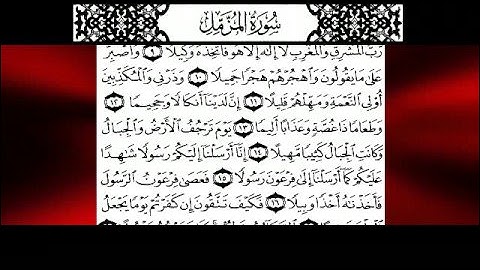 سُورَةُ المُزَّمِّل
رَبُّ ٱلْمَشْرِقِ وَٱلْمَغْرِبِ لَآ إِلَٰهَ إِلَّا هُوَ فَٱتَّخِذْهُ وَكِيلًا ٩ وَٱصْبِرْ
عَلَىٰ مَا يَقُولُونَ وَٱهْجُرْهُمْ هَجْرًا جَمِيلًا ١٠ وَذَرْنِى وَٱلْمُكَذِّبِينَ
أُو۟لِى ٱلنَّعْمَةِ وَمَهِّلْهُمْ قَلِيلًا ١١ إِنَّ لَدَيْنَآ أَنكَالًا وَجَحِيمًا ١٢
وَطَعَامًا ذَا غُصَّةٍ وَعَذَابًا أَلِيمًا ١٣ يَوْمَ تَرْجُفُ ٱلْأَرْضُ وَٱلْجِبَالُ
وَكَانَتِ ٱلْجِبَالُ كَثِيبًا مَّهِيلًا ١٤ إِنَّآ أَرْسَلْنَآ إِلَيْكُمْ رَسُولًا شَٰهِدًا
عَلَيْكُمْ كَمَآ أَرْسَلْنَآ إِلَىٰ فِرْعَوْنَ رَسُولًا ١٥ فَعَصَىٰ فِرْعَوْنُ ٱلرَّسُولَ
فَأَخَذْنَٰهُ أَخْذًا وَبِيلًا ١٦ فَكَيْفَ تَتَّقُونَ إِن كَفَرْتُمْ يَوْمًا يَجْعَلُ